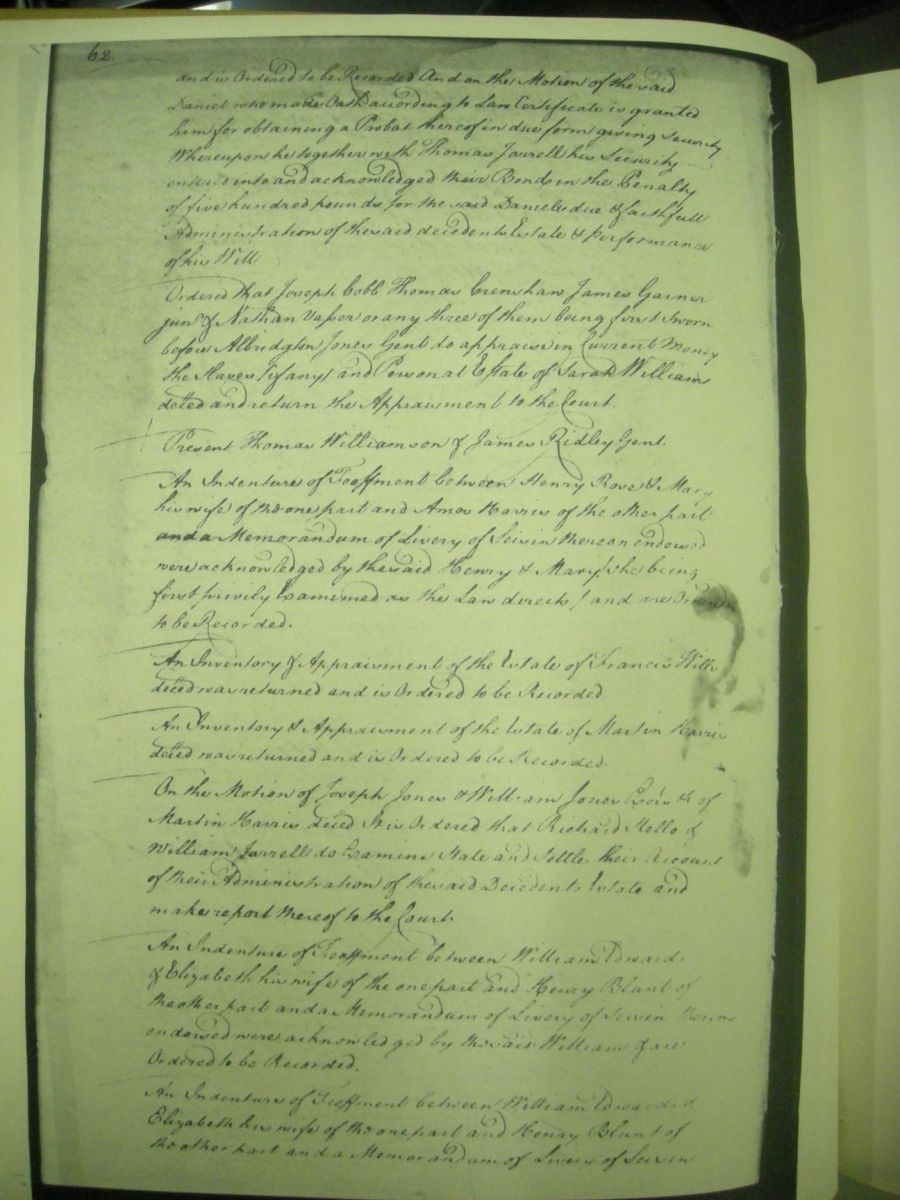 62.
and is Ordered to be Recorded And on the Motion of the said
Daniel who made Oath according to Law Certificate is granted
him for obtaining a Probat thereof in due form giving Security
Whereupon he together with Thomas Jarrell his Security
entered into and acknowledged their Bond in the Penalty
of five hundred pounds for the said Daniels due & faithfull
Administration of the said decedents Estate & performance
of his Will
Ordered that Joseph Cobb Thomas Crenshaw James Garner
junr. & Nathan Vasser or any three of them being first Sworn
before Albridgton Jones Gent do appraise in Current Money
the Slaves (if any) and Personal Estate of Sarah Williams
deced and return the Appraisment to the Court.
Present Thomas Williamson & James Ridley Gent.
An Indenture of Feoffment between Henry Rose & Mary
his wife of the one part and Amos Harris of the other part
and a Memorandum of Livery of Seisin thereon endorsed
were acknowledged by the said Henry & Mary (she being
first privily Examined as the Law directs) and are Ordered
to be Recorded.
An Inventory & Appraisment of the Estate of Francis
deced was returned and is Ordered to be Recorded
An Inventory & Appraisment of the Estate of Martin Harris
deced was returned and is Ordered to be Recorded.
On the Motion of Joseph Jones & William Jones of
Martin Harris deced It is Ordered that Richard Kello &
William Jarrell do Examine State and Settle their Account
of their Administration of the said Decedents Estate and
make report thereof to the Court.
An Indenture of Feoffment between William Edwards
& Elizabeth his wife of the one part and Henry Blunt of
the other part and a Memorandum of Livery of Seisen thereon
endorsed were acknowledged by the said William & are
Ordered to be Recorded.
An Indenture of Feoffment between William Edwards &
Elizabeth his wife of the one part and Henry Blunt of
the other part and a Memorandum of Livery of Seisin